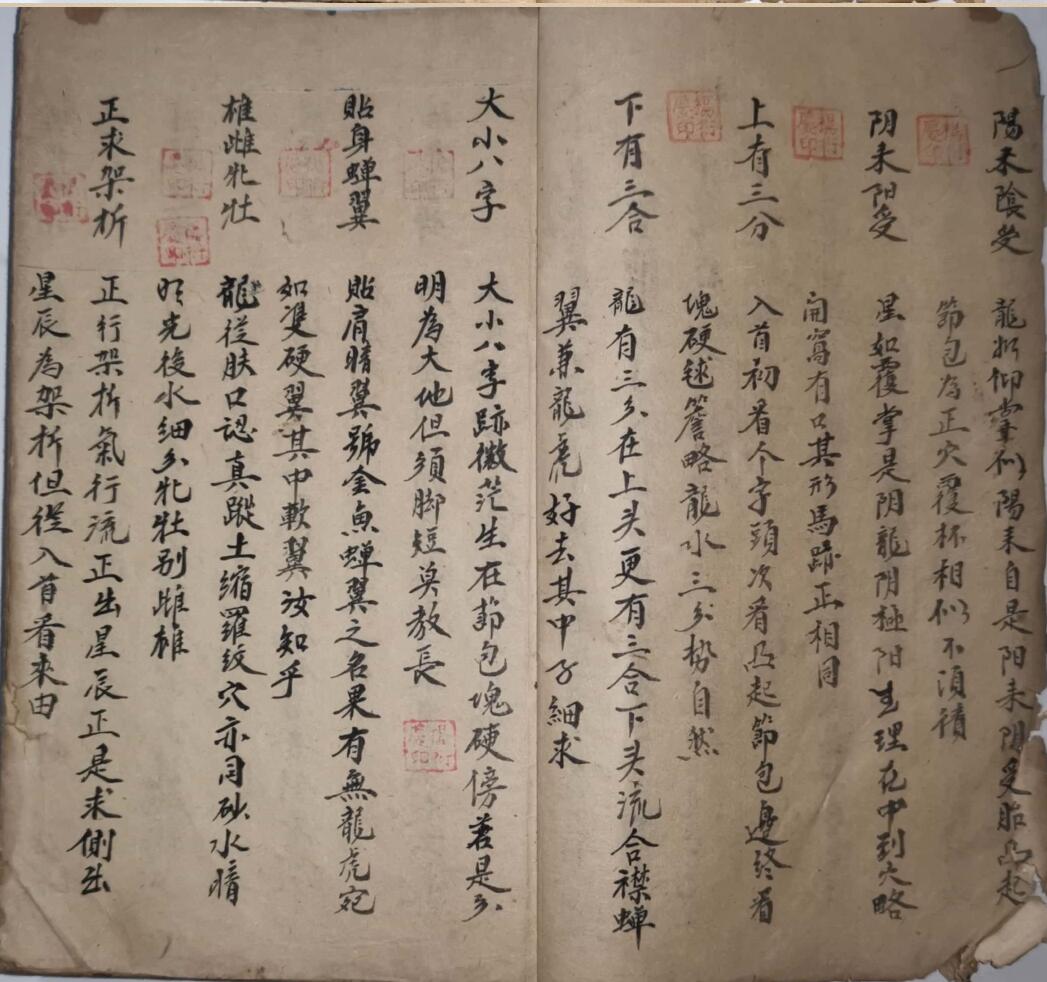 陽来陰受 龍如仰掌似陽来自是阳来阴受胎凸起
節包為正穴覆杯相似不須積
阴来阳受 星如覆掌是阴龍阴極阳生理在中到穴略
開窩有口其形馬跡正相同
上有三分 入首初看个字頭次看凸起節包邊終看
塊硬毬簷略龍水三分勢自然
下有三合 龍有三分在上头更有三合下头流合襟蝉
翼兼龍虎好去其中子細求
大小八字 大小八字跡微茫生在節包塊硬傍若是分
明為大他但須脚短莫教長
貼身蝉翼 貼肩暗翼號金魚蝉翼之名果有無龍虎宛
如雙硬翼其中軟翼汝知乎
雄雌牝牡 龍從肤口認真蹤土縮羅紋穴亦同砂水暗
明先後水細分牝牡别雌雄
正求架折 正行架折氣行流正出星辰正是求側出
星辰為架折但從入首看来由